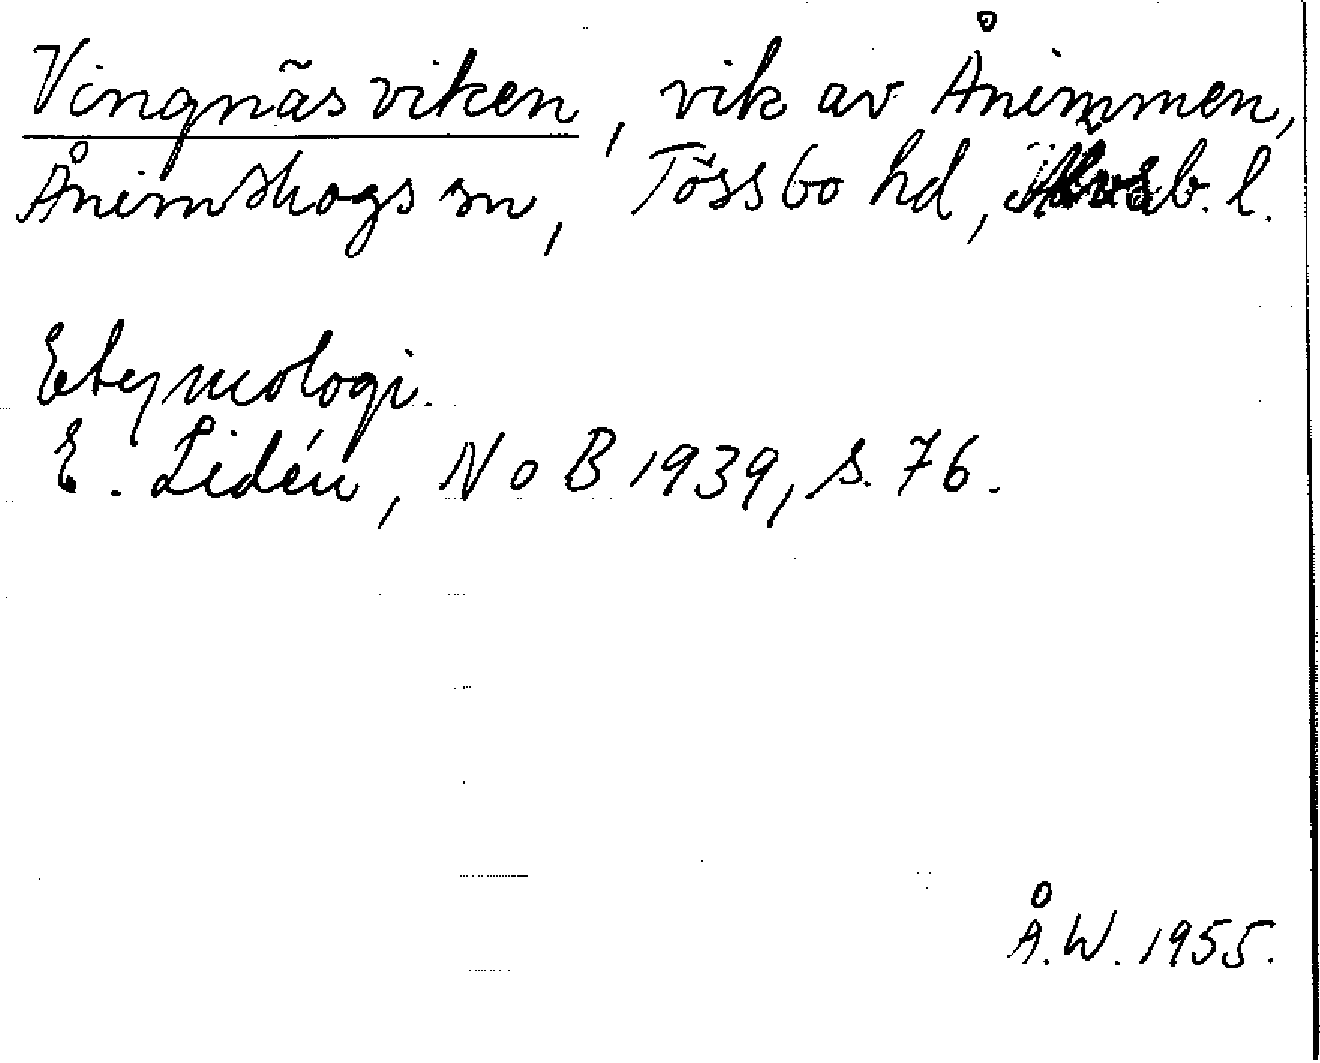 Vingnäsviken, vik av Ånimmen,
Ånimskogs sn, Tössbo hd, Älvsb. l.
Etymologi.
E. Lidén, NoB 1939, s. 76.
Å.W. 1955.